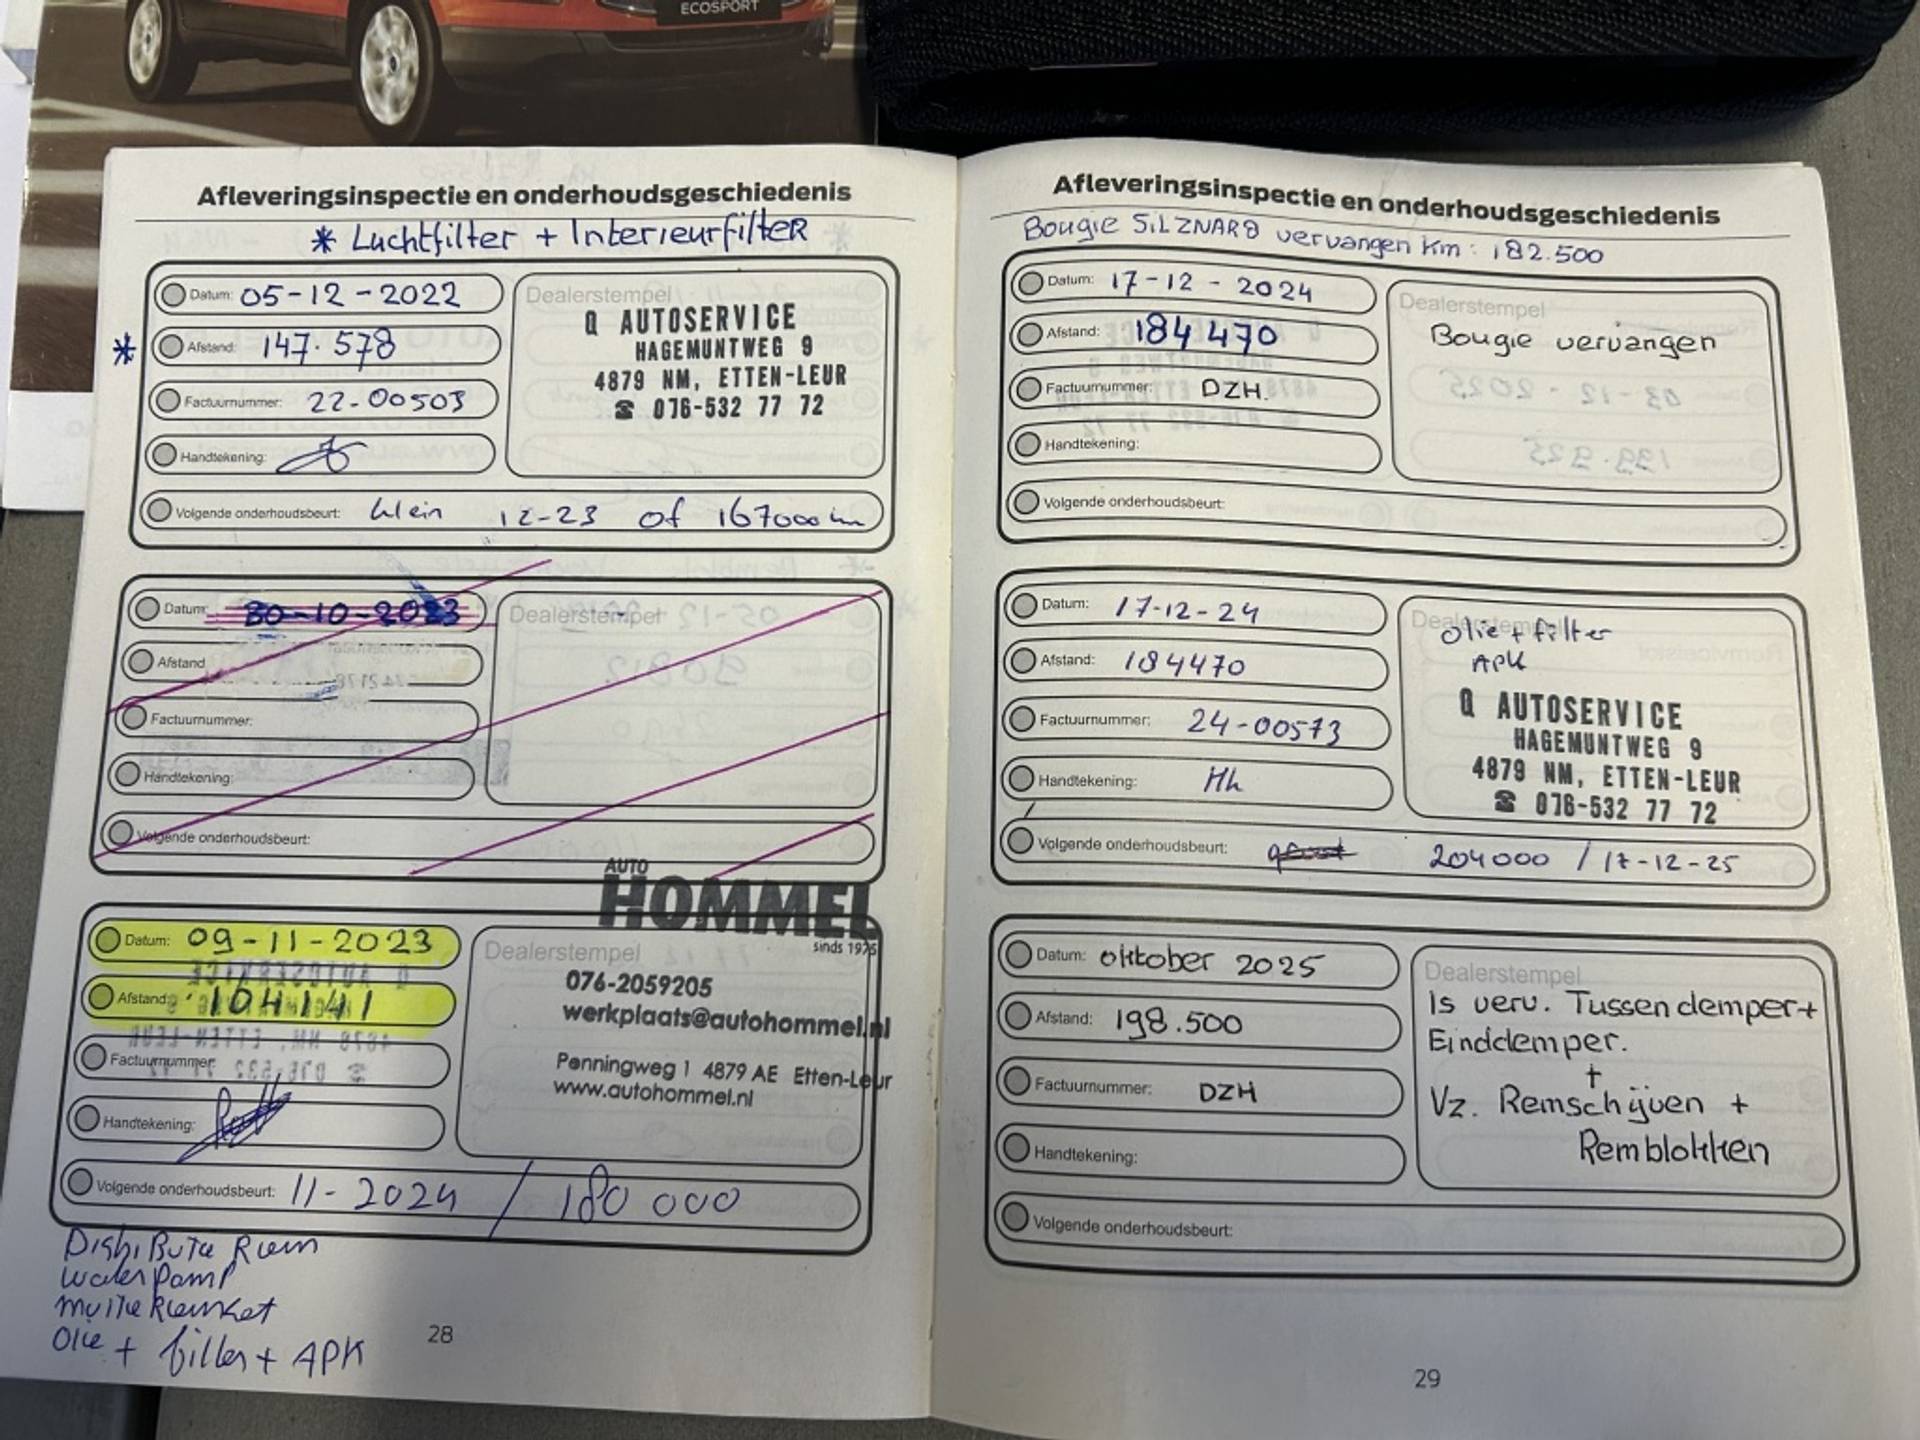 ECOSPORT
Afleveringsinspectie en onderhoudsgeschiedenis
* Luchtfilter + Interieurfilter
Datum: 05-12-2022
* Afstand: 147.578
Factuurnummer: 22-00503
Handtekening:
Dealerstempel
Q AUTOSERVICE
HAGEMUNTWEG 9
4879 NM, ETTEN-LEUR
☎ 076-532 77 72
Volgende onderhoudsbeurt: klein 12-23 of 167000 km
Datum: 30-10-2023
Afstand
Factuurnummer:
Handtekening:
Dealerstempel
Volgende onderhoudsbeurt:
Datum: 09-11-2023
Afstand: 164141
Factuurnummer:
Handtekening:
AUTO
HOMMEL
sinds 1975
Dealerstempel
076-2059205
werkplaats@autohommel.nl
Penningweg 1 4879 AE Etten-Leur
www.autohommel.nl
Volgende onderhoudsbeurt: 11-2024 / 180 000
Distributie Riem
waterpomp
multieriemset
Olie + filter + APK
28
Afleveringsinspectie en onderhoudsgeschiedenis
Bougie SILZNAR8 vervangen km: 182.500
Datum: 17-12-2024
Afstand: 184470
Factuurnummer: DZH.
Handtekening:
Dealerstempel
Bougie vervangen
Volgende onderhoudsbeurt:
Datum: 17-12-24
Afstand: 184470
Factuurnummer: 24-00573
Handtekening: Hh
Dealerstempel
Olie + filter
APK
Q AUTOSERVICE
HAGEMUNTWEG 9
4879 NM, ETTEN-LEUR
☎ 076-532 77 72
Volgende onderhoudsbeurt: 204000 / 17-12-25
Datum: oktober 2025
Afstand: 198.500
Factuurnummer: DZH
Handtekening:
Dealerstempel
Is verv. Tussendemper +
Einddemper.
+
Vz. Remschijven +
Remblokken
Volgende onderhoudsbeurt:
29